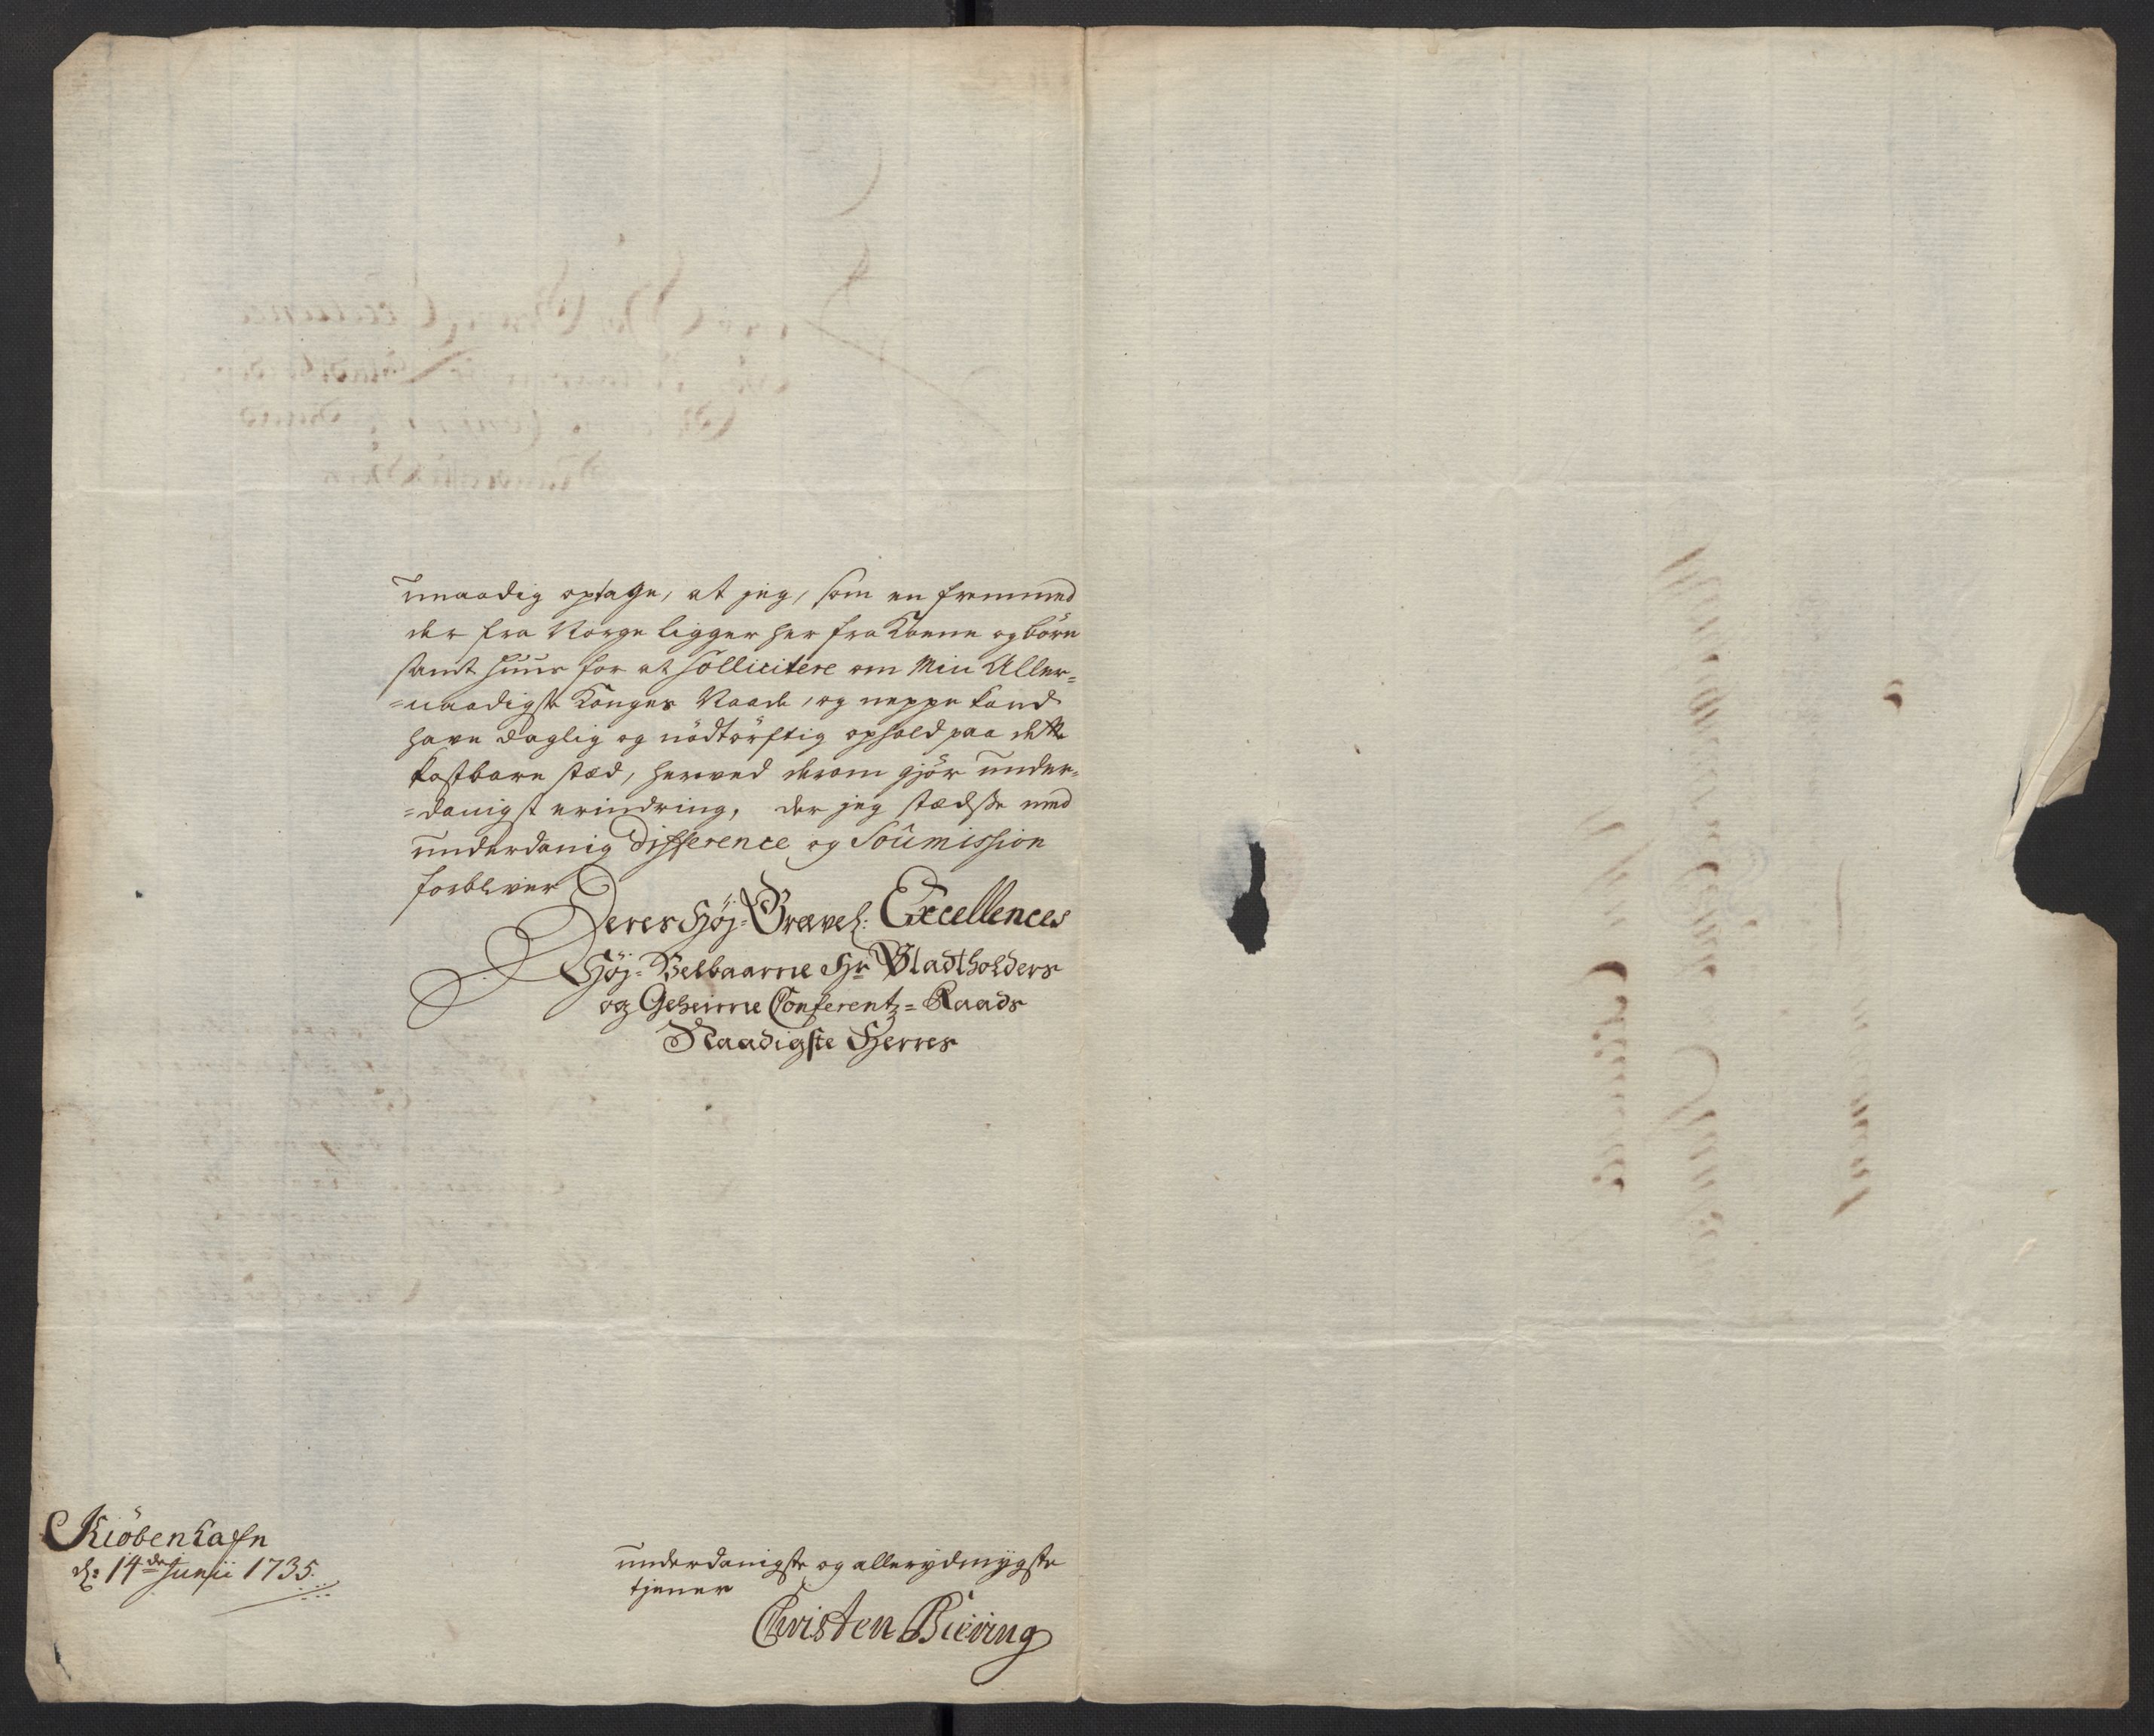 unaadig optage, at jeg, som en fremmed
der fra Norge ligger her fra Kone og börn
samt huus for at sollicitere om Min Aller=
=naadigste Konges Naade, og neppe kand
have daglig og nödtörftig ophold paa dette
kostbare stæd, herved derom gjör under=
=danigst erindring, der jeg stædsse med
underdanig Difference og Soumission
forbliver
Deres Høj=Grævel: Excellences
Høj=Velbaarne Hr Stadtholders
og Geheime Conferentz=Raads
Naadigste Herres
Kiöbenhafn
d: 14de Junii 1735.
underdanigste og allerydmygste
tjener
Christen Biering